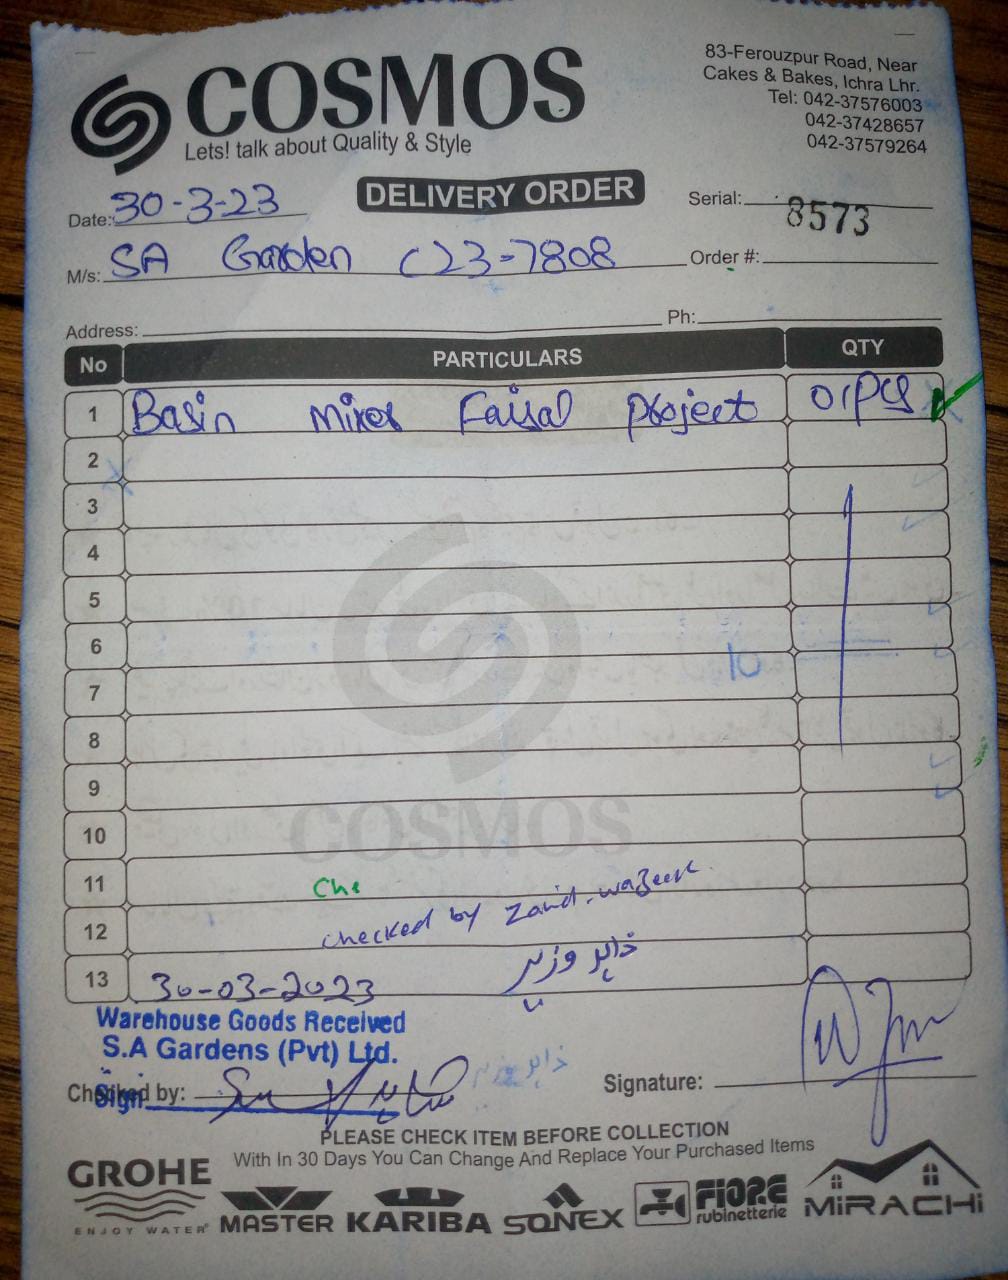 COSMOS
Lets! talk about Quality & Style
83-Ferouzpur Road, Near
Cakes & Bakes, Ichra Lhr.
Tel: 042-37576003
042-37428657
042-37579264
DELIVERY ORDER
Date: 30-3-23
Serial: 8573
M/s: SA Garden C23-7808
Order #:
Address:
Ph:
No PARTICULARS QTY
1 Basin Mixer Faisal Project 01PCS
2
3
4
5
6
10
7
8
9
COSMOS
10
11 Che
12 checked by Zahid. wazeer
13 30-03-2023
Warehouse Goods Received
S.A Gardens (Pvt) Ltd.
Checked by:
Sign
Signature:
PLEASE CHECK ITEM BEFORE COLLECTION
With In 30 Days You Can Change And Replace Your Purchased Items
GROHE
ENJOY WATER®
MASTER
KARIBA
SONEX
FIORE
rubinetterie
MiRACHi